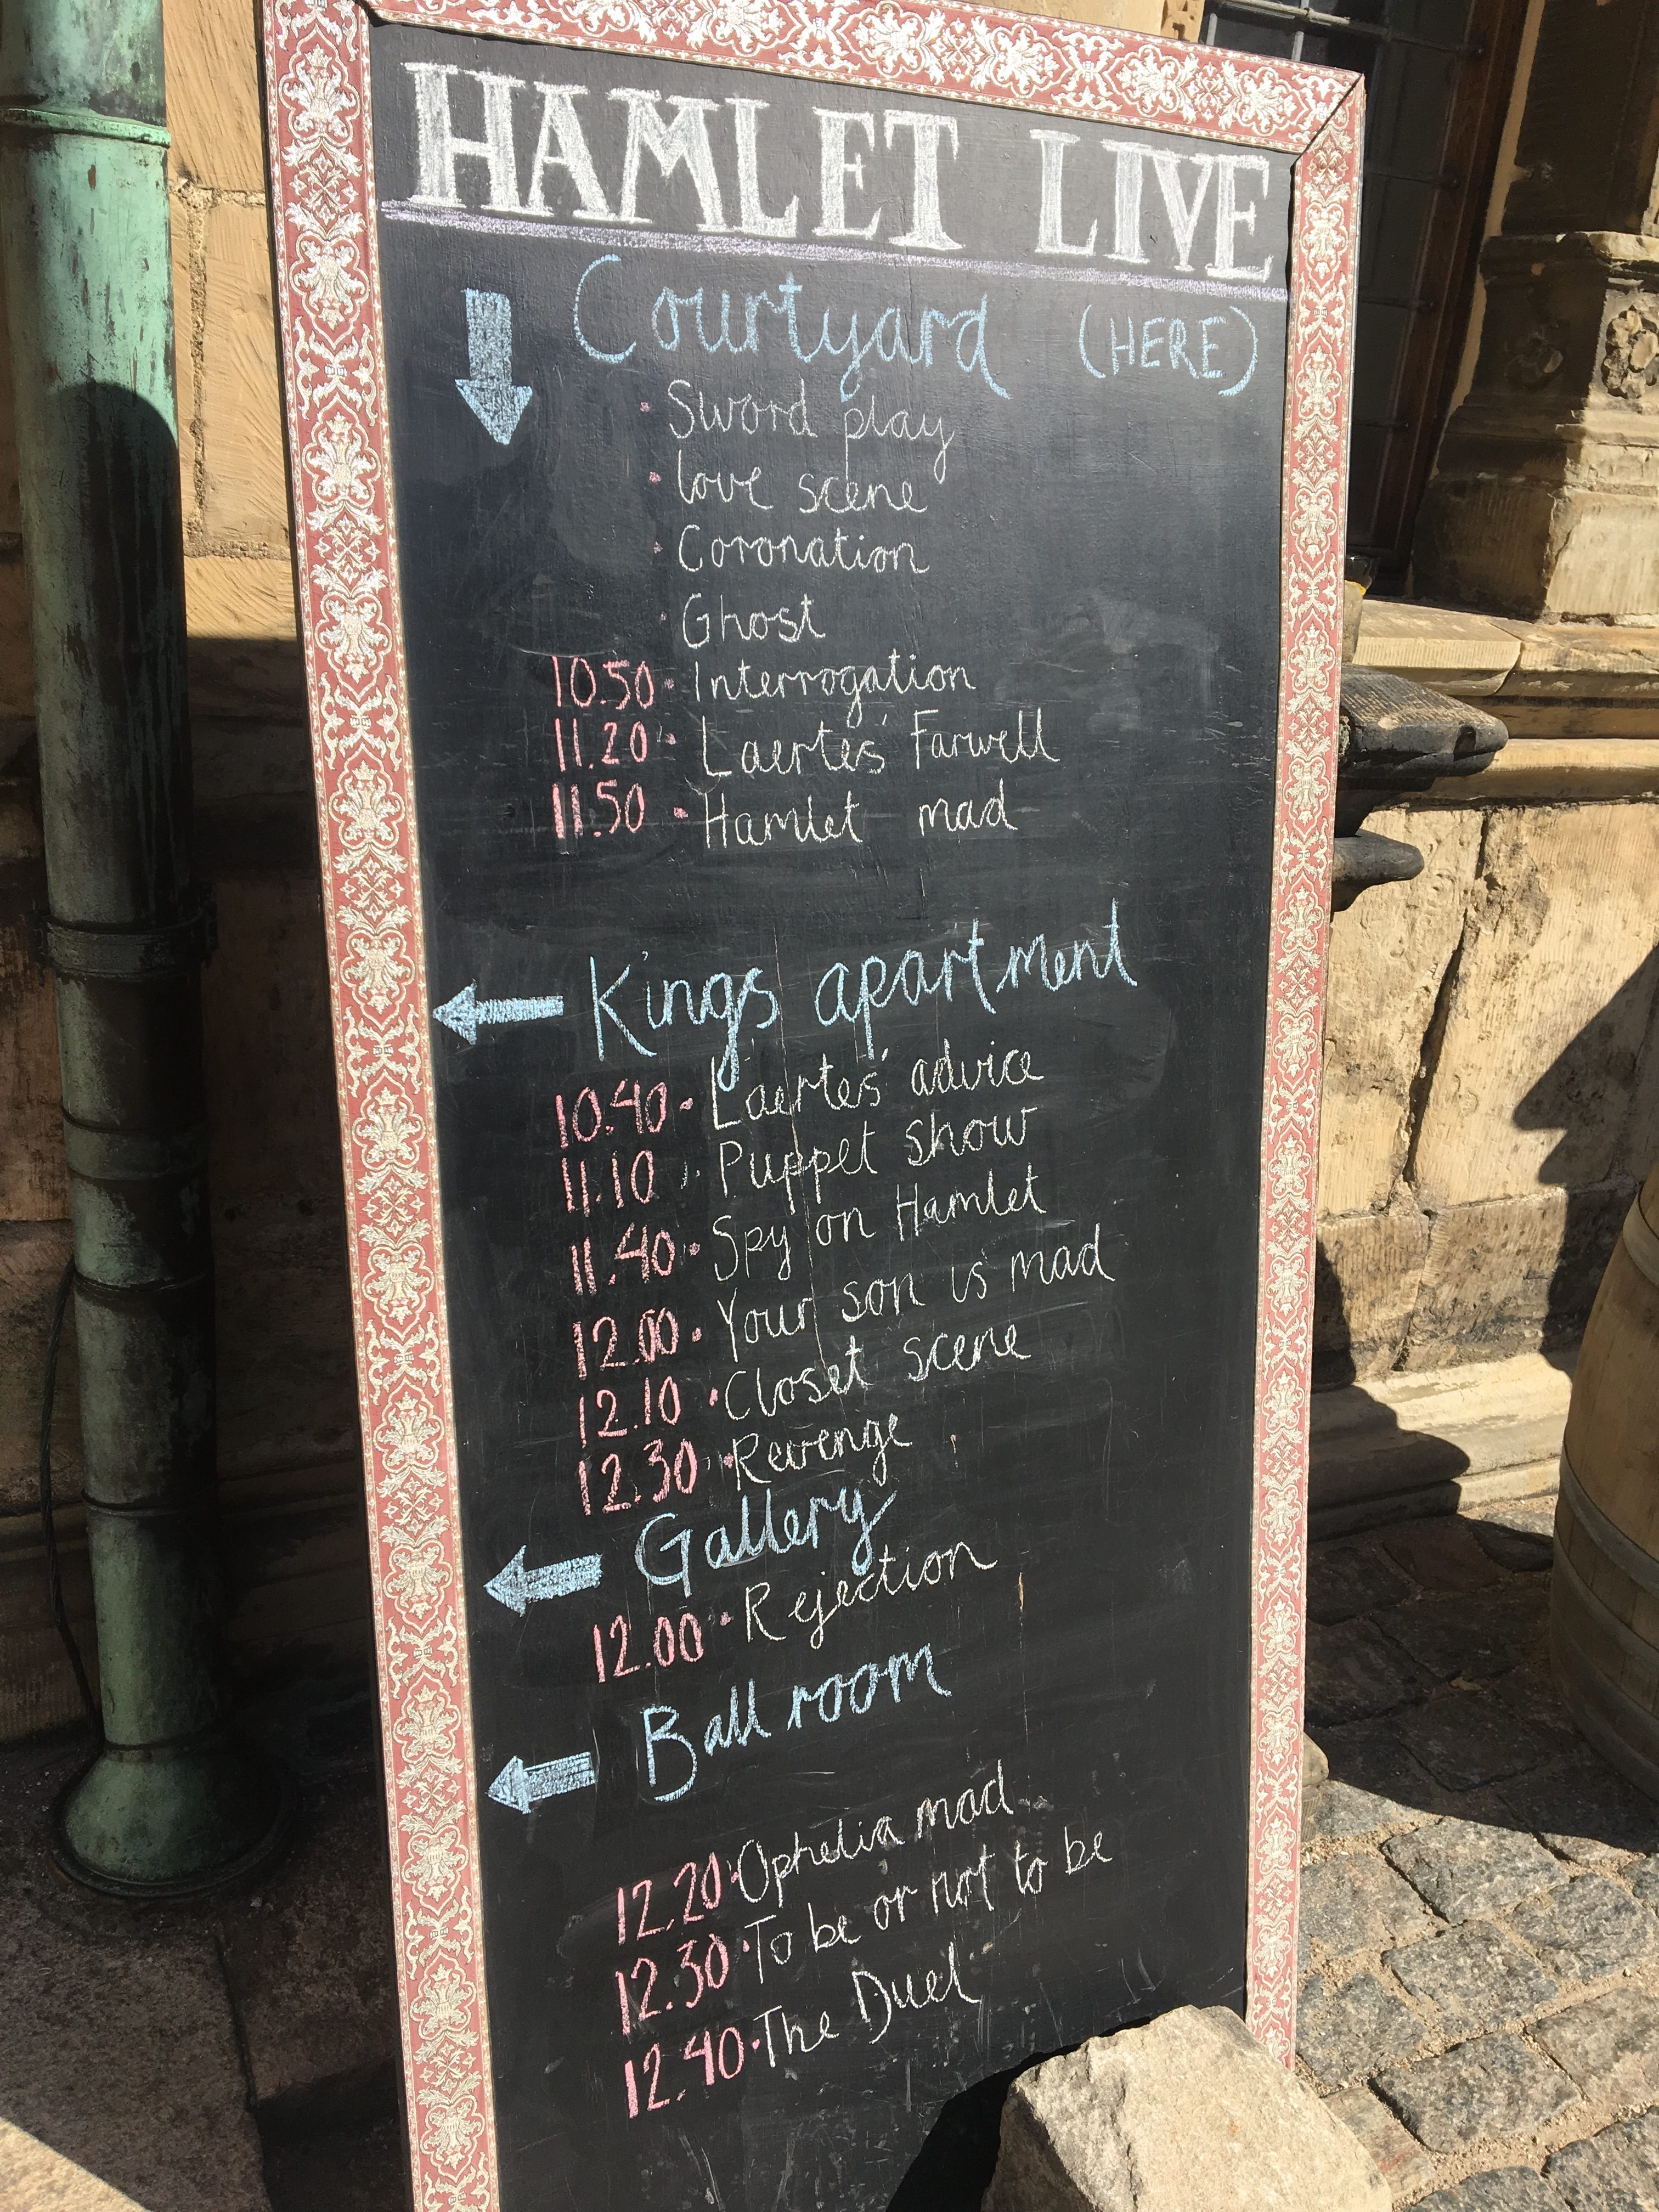 HAMLET LIVE
Courtyard (HERE)
· Sword play
· love scene
· Coronation
· Ghost
10.50 · Interrogation
11.20 · Laertes' Farwell
11.50 · Hamlet mad
Kings apartment
10.40 · Laertes' advice
11.10 · Puppet show
11.40 · Spy on Hamlet
12.00 · Your son is mad
12.10 · Closet scene
12.30 · Revenge
Gallery
12.00 · Rejection
Ball room
12.20 · Ophelia mad
12.30 · To be or not to be
12.40 · The Duel